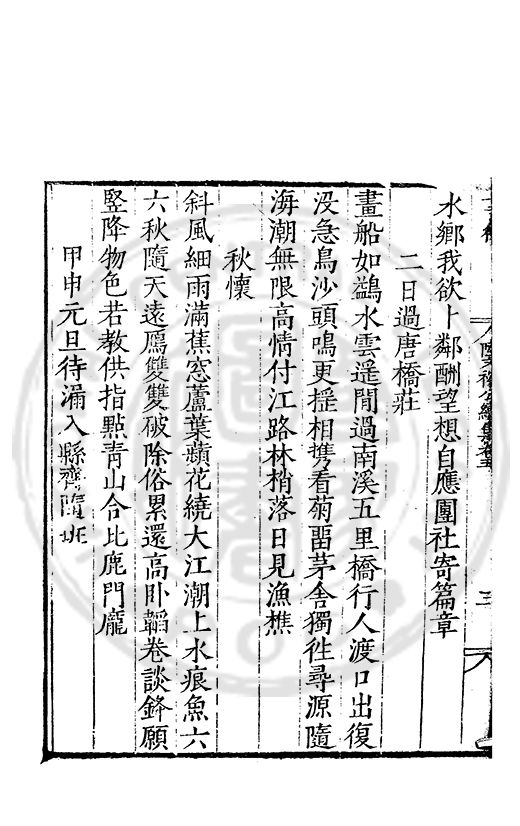 水鄉我欲卜鄰酬望想自應團社寄篇章
二日過唐橋莊
畫船如鷁水雲遥閒過南溪五里橋行人渡口出復
没急鳥沙頭鳴更揺相携看菊畱茅舍獨徃尋源隨
海潮無限高情付江路林梢落日見漁樵
秋懷
斜風細雨滿蕉窓蘆葉蘋花繞大江潮上水痕魚六
六秋隨天遠鴈雙雙破除俗累還高卧韜卷談鋒願
竪降物色若教供指點青山合比鹿門龐
甲申元旦待漏入縣齋隨班
三